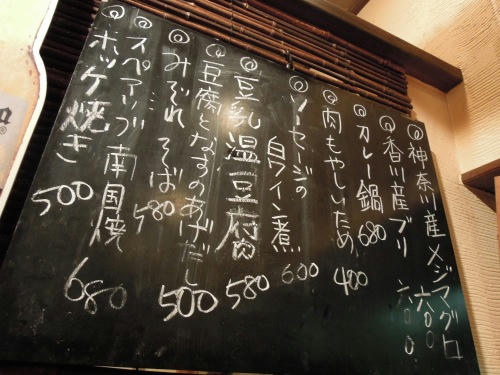 神奈川産メジマグロ 六〇〇
香川産ブリ 六〇〇
カレー鍋 680
肉もやしいため 400
ソーセージの
白ワイン煮 600
豆乳温豆腐 580
豆腐となすのあげだし 500
みぞれそば 580
スペアリブ南国焼 680
ホッケ焼き 500